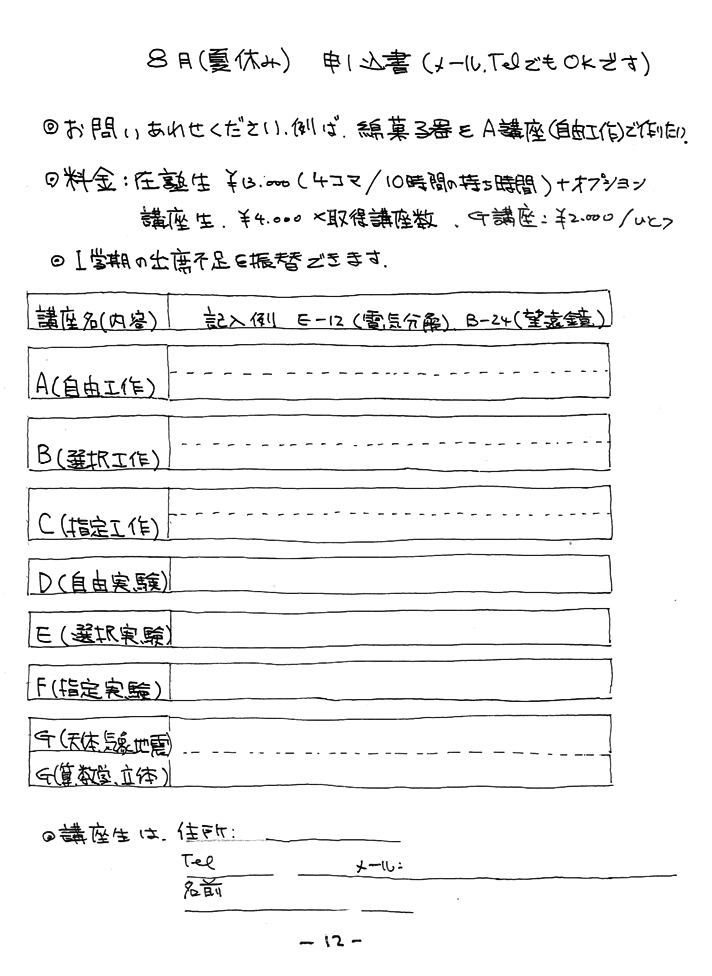 8月(夏休み) 申し込書(メール.TelでもOKです)
◎お問いあわせください.例ば.綿菓子器をA講座(自由工作)で作りたい.
◎料金:在塾生 ¥13.000(4コマ/10時間の持ち時間)+オプション
講座生.¥4.000×取得講座数.G講座:¥2.000/ひとつ
◎1学期の出席不足を振替できます.
講座名(内容) 記入例 E-12(電気分解).B-24(望遠鏡)
A(自由工作)
B(選択工作)
C(指定工作)
D(自由実験)
E(選択実験)
F(指定実験)
G(天体.気象.地震)
G(算.数学.立体)
◎講座生は.住所:
Tel メール:
名前
-12-